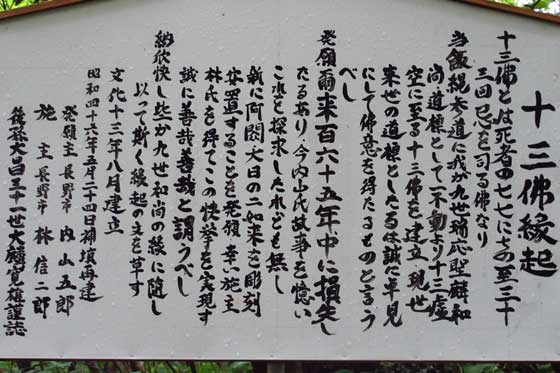 十三佛縁起
十三佛とは死者の七七にちの至三十
三回忌を司る佛なり
当飯縄参道に我が九世瑞応聖麟和
尚道標として一不動より十三虚
空に至る十三佛を建立 現世
来世の道標としたるは誠に卓見
にして佛意を得たるものと言う
べし
発願爾来百六十五年中に損失し
たるあり 今内山氏故事を憶い
これを探求したれども無し
新に阿閦大日の二如来を彫刻
安置することを発願 幸い施主
林氏を得てこの快挙を実現す
誠に善哉善哉と謂つべし
納欣快し些か九世和尚の綾に随し
以って斯く縁起の文を草す
文化十三年八月建立
昭和四十六年五月二十四日補填再建
発願主 長野市 内山五郎
施主 長野市 林信二郎
大昌三十一世大麟寛雄謹誌